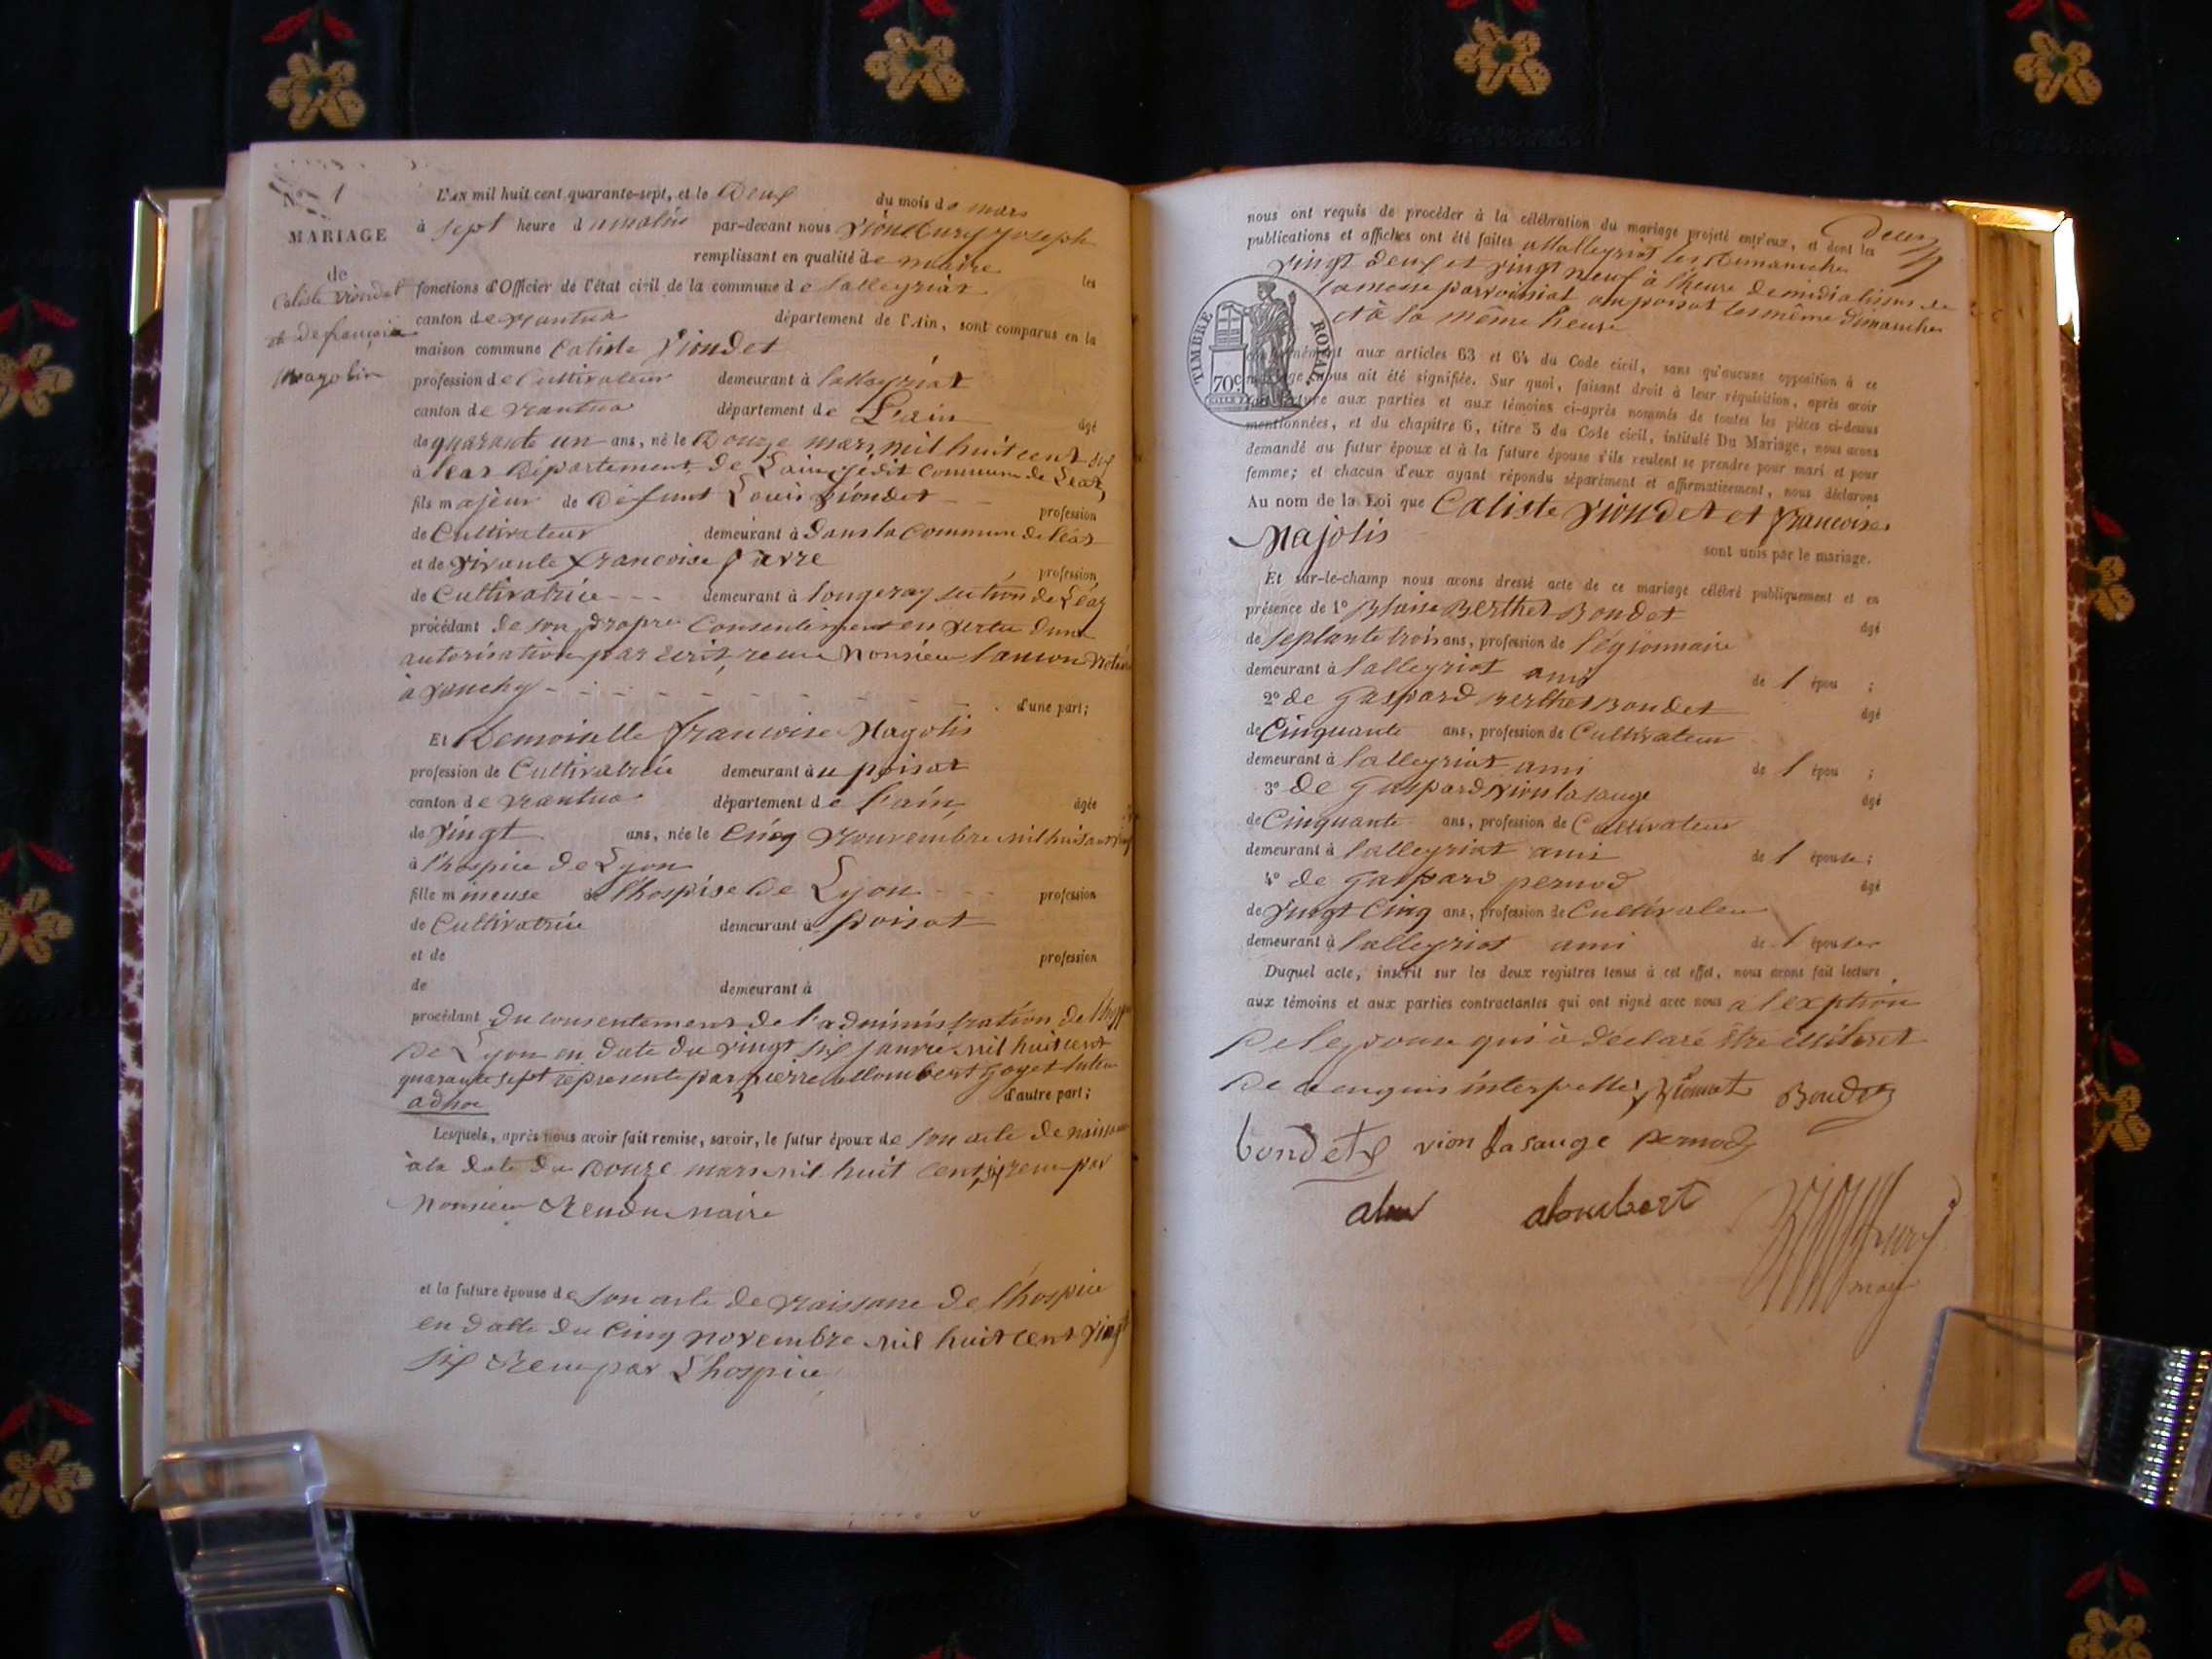 N° 1
MARIAGE
de
Caliste Viondet
et de françoise
Magolin
L'AN mil huit cent quarante-sept, et le Deux du mois de mars
à sept heure du matin par-devant nous Vion Dury Joseph
remplissant en qualité de maire les
fonctions d'Officier de l'état civil de la commune de Lalleyriat
canton de Nantua département de l'Ain, sont comparus en la
maison commune Caliste Viondet
profession de Cultivateur demeurant à Lalleyriat
canton de Nantua département de L'ain âgé
de quarante un ans, né le Douze mars mil huit cent six
à Léaz Département de Lain, commune de Leaz,
fils majeur de Défunt Louis Viondet profession
de Cultivateur demeurant à Dans la Commune de Léaz
et de Vivante francoise favre profession
de Cultivatrice demeurant à longeray section de Léaz
procédant de son propre Consentement en vertu dune
autorisation par écrit, reçue Monsieur Notaire
à Vanchy d'une part;
Et Demoiselle francoise Magolis
profession de Cultivatrice demeurant à u poizat
canton de Nantua département de l'ain âgée
de Vingt ans, née le Cinq Nouvembre mil huit cent vingt
à l'hospice de Lyon
fille mineuse de l'hospise De Lyon profession
de Cultivatrice demeurant à poisat
et de profession
de demeurant à
procédant du consentement de l'administration de l'hospice
De Lyon en date du vingt six janvier mil huit cent
quarante sept représenté par pierre allombert goyet tuteur
adhoc d'autre part;
Lesquels, après nous avoir fait remise, savoir, le futur époux de son acte de naissance
à la date du Douze mars mil huit cent six reçu par
Monsieur Rendu maire
et la future épouse de son acte de naissance de l'hospice
en datte du Cinq novembre mil huit cent vingt
six Recu par L'hospice
Deux
nous ont requis de procéder à la célébration du mariage projeté entr'eux, et dont les
publications et affiches ont été faites a Lalleyriat les Dimanches
vingt deux et vingt neuf à l'heure de midi à lissus de
la messe parroissial au poisat les même dimanches
et à la même heure
TIMBRE ROYAL
70c
conformément aux articles 63 et 64 du Code civil, sans qu'aucune opposition à ce
mariage nous ait été signifiée. Sur quoi, faisant droit à leur réquisition, après avoir
fait lecture aux parties et aux témoins ci-après nommés de toutes les pièces ci-dessus
mentionnées, et du chapitre 6, titre 5 du Code civil, intitulé Du Mariage, nous avons
demandé au futur époux et à la future épouse s'ils veulent se prendre pour mari et pour
femme; et chacun d'eux ayant répondu séparément et affirmativement, nous déclarons
Au nom de la Loi que Caliste Viondet et francoise
Majolis sont unis par le mariage.
Et sur-le-champ nous avons dressé acte de ce mariage célébré publiquement et en
présence de 1° Blaise Berthet Bondet âgé
de septante trois ans, profession de légionnaire
demeurant à Lalleyriat ami de l épou ;
2° de Gaspard Berthet Bondet âgé
de Cinquante ans, profession de Cultivateur
demeurant à Lalleyriat ami de l épou ;
3° de Gaspard Vion lasauge âgé
de Cinquante ans, profession de Cultivateur
demeurant à Lalleyriat ami de l épouse ;
4° de Gaspard pernod âgé
de Vingt Cinq ans, profession de Cultivateu
demeurant à Lalleyriat ami de l épouse
Duquel acte, inscrit sur les deux registres tenus à cet effet, nous avons fait lecture
aux témoins et aux parties contractantes qui ont signé avec nous a l'exption
De lepouse qui à déclaré être illiteret
De ce enquis interpellé Bondet
bondet vion Lasauge pernod
alombert